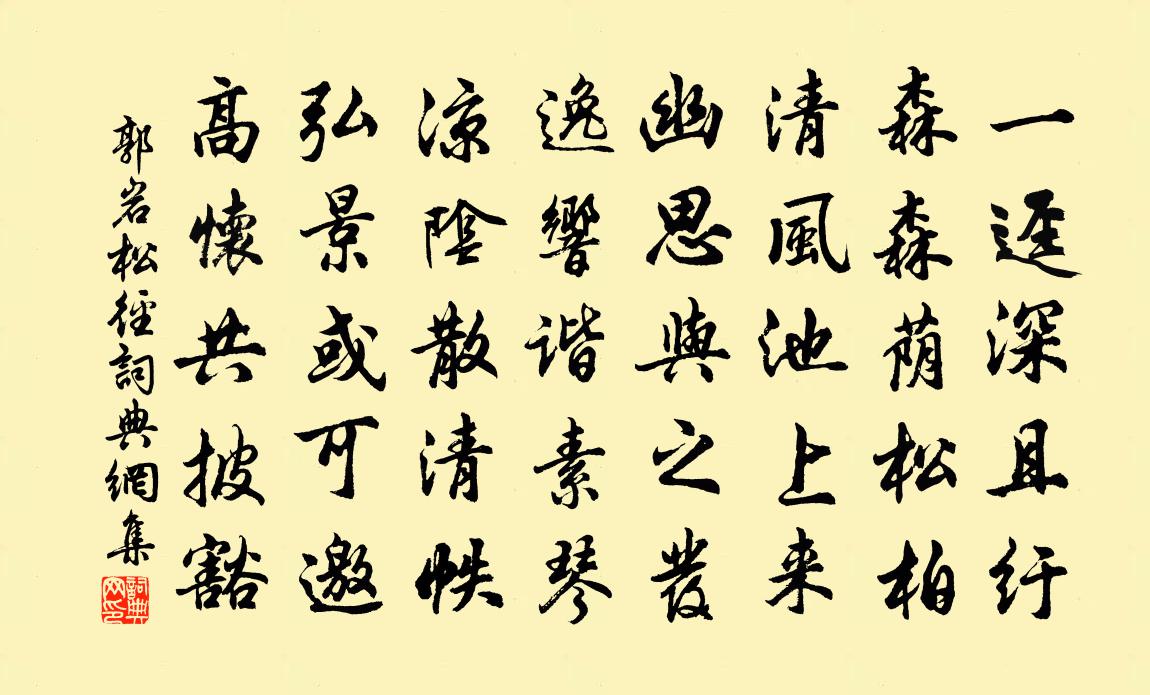 一逕深且纡
森森荫松柏
清風池上来
幽思與之發
逸響谐素琴
凉陰散清帙
弘景或可邀
高懷共披豁
郭岩松徑詞典網集
詞典网印